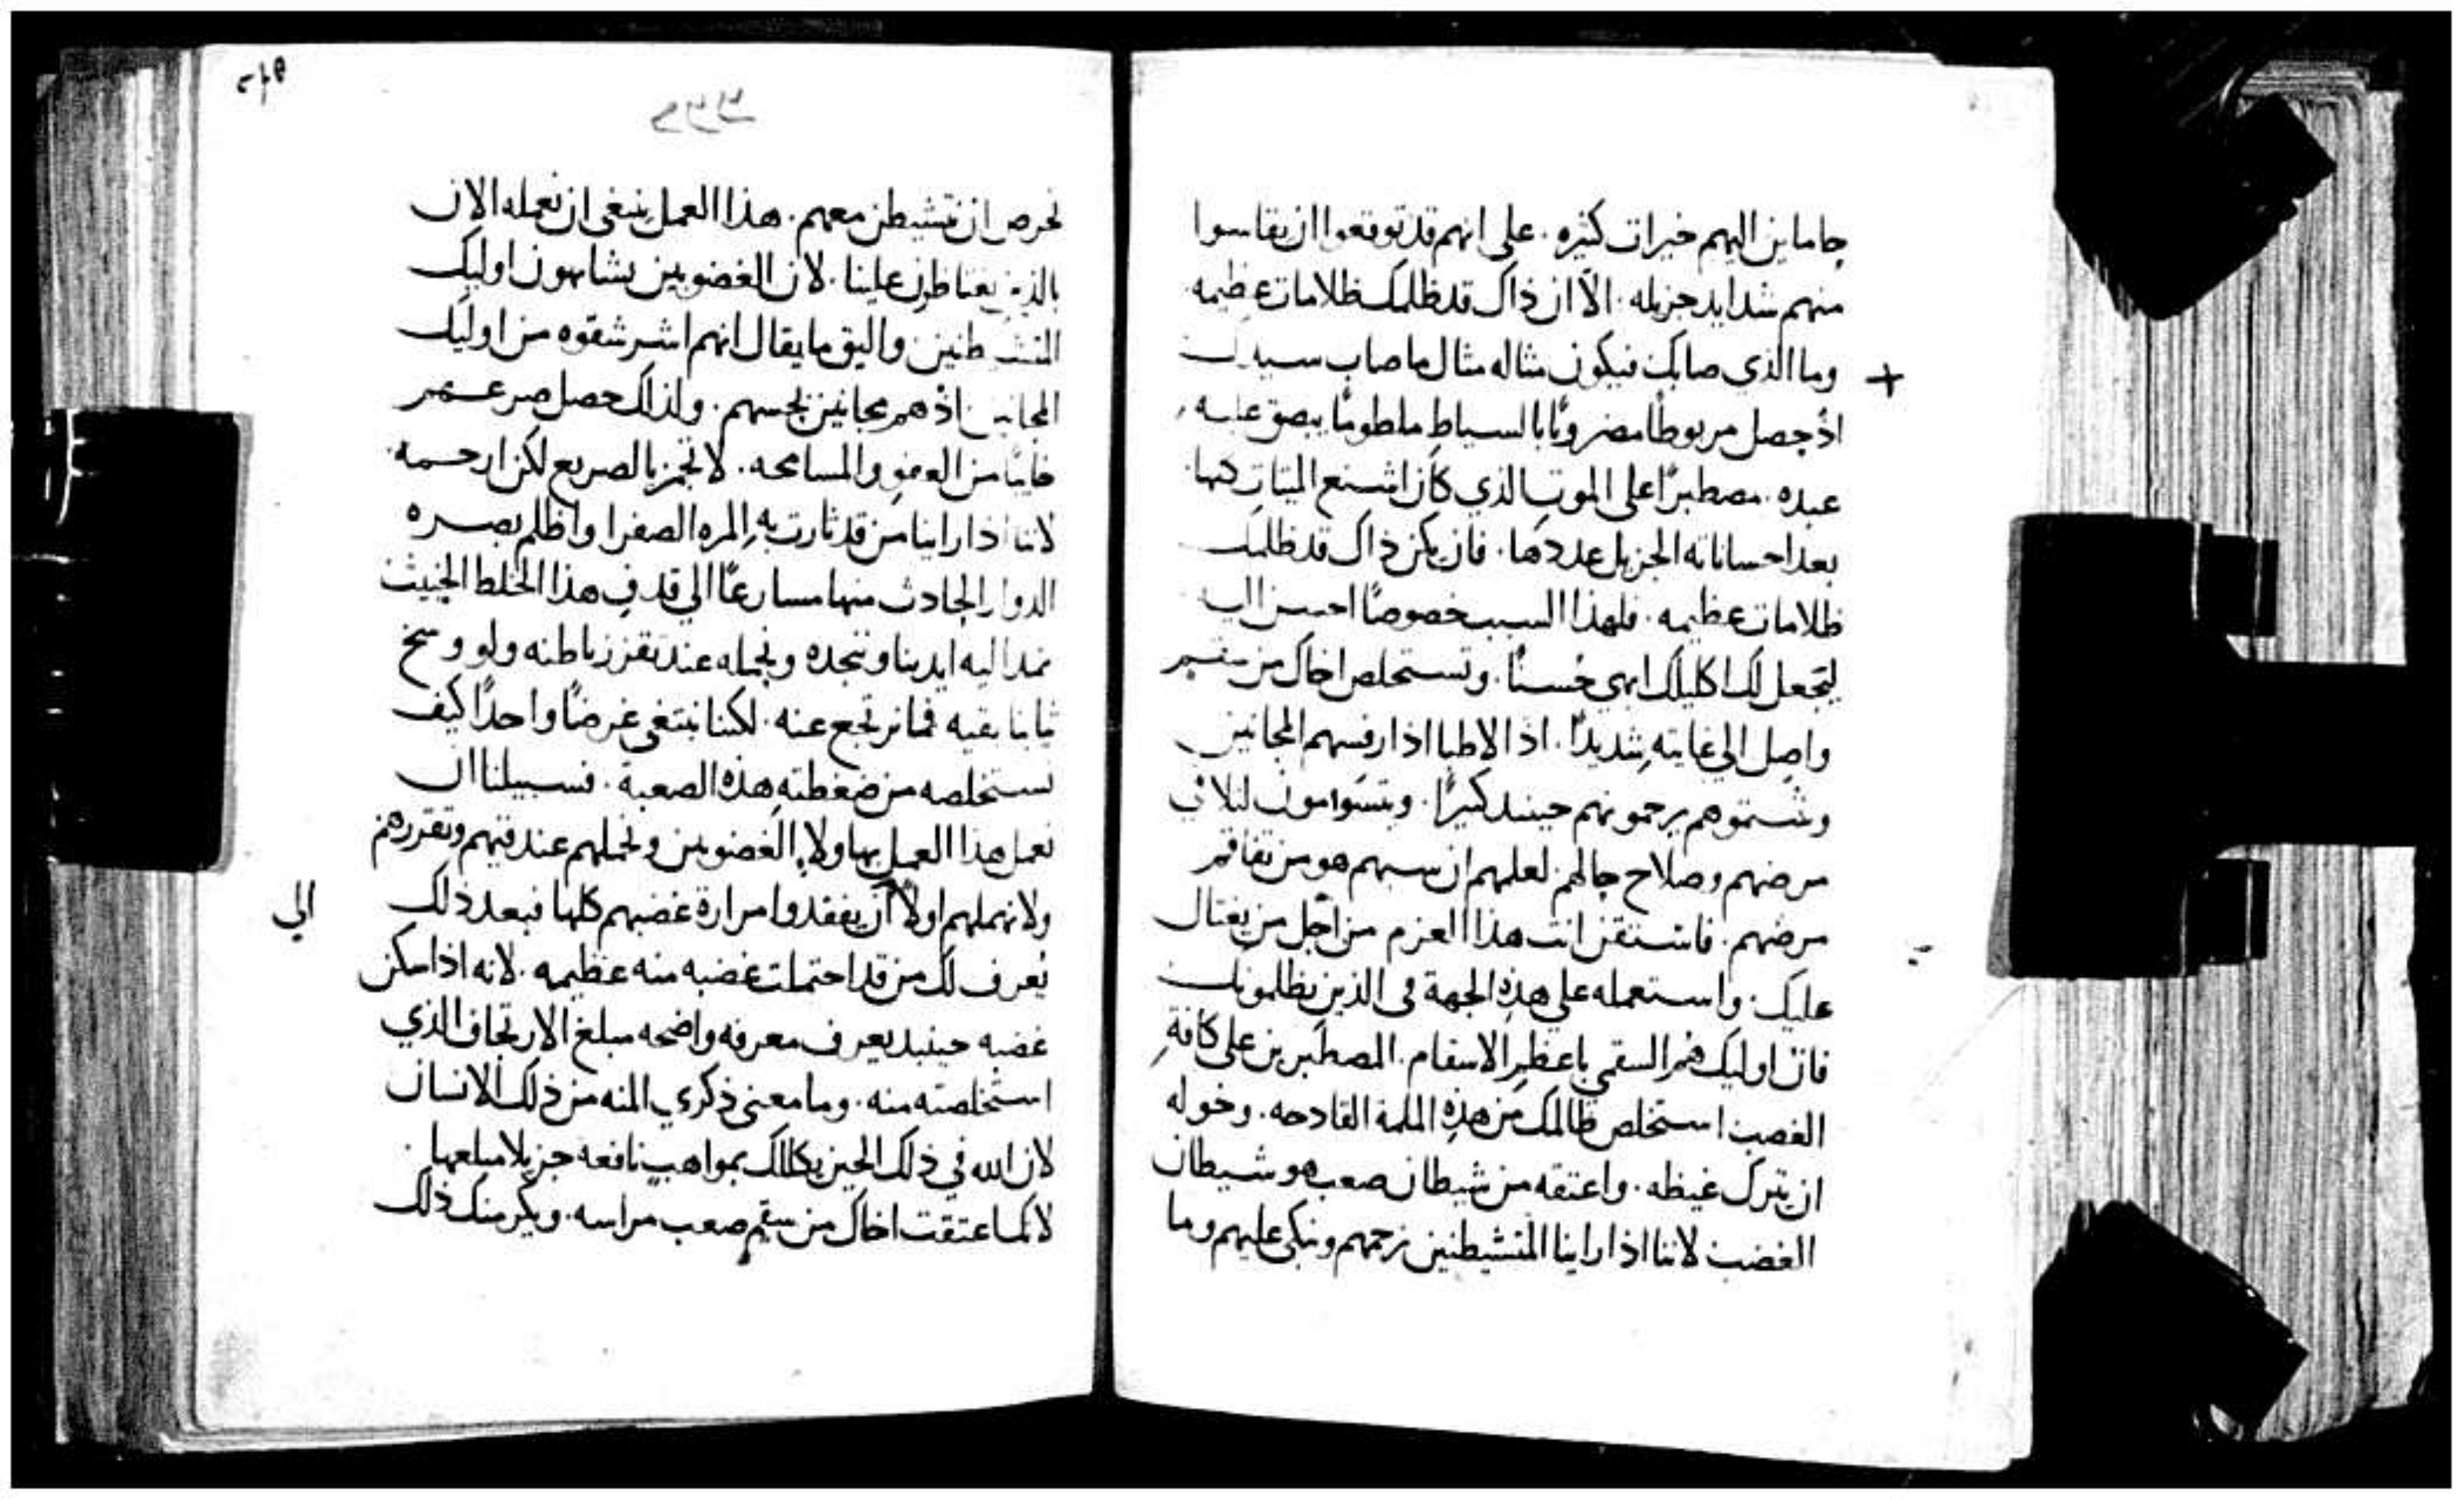 جاماين اليهم خيرات كثيره. على انهم قد توقعوا ان يقاسوا
منهم شدايد جزيله. الا ان ذاك قد ظلمك ظلامات عظيمه.
وما الذي صابك فيكون مثاله مثال ما صاب سيدك
+
اذ حصل مربوطا مضروبا بالسياط ملطوما يبصق عليه
عبده. مصطبرا على الموت الذي كان اشنع الميتات كلها.
بعد احساناته الجزيل عددها. فان يكن ذاك قد ظلمك
ظلامات عظيمه. فلهذا السبب خصوصا احسن اليه
ليتجعل لك اكليلك ابهى حسنا. وتستخلص اخاك من سقم
واصل الى غايته شديدا. اذ الاطبا اذا رفسهم المجانين
وشتموهم يرحمونهم حينيد كثيرا. ويتسوامون لتلافي
مرضهم وصلاح حالهم. لعلمهم ان سبهم هو من تفاقم
مرضهم. فاستقن انت هذا العزم من اجل من يغتال
عليك. واستعمله على هذه الجهة في الذين يظلمونك
فان اوليك هم السقمى باعظم الاسقام. المصطبرين على كافة
الغصب استخلص ظالمك من هذه الملمة الفادحه. وخوله
ان يترك غيظه. واعتقه من شيطان صعب هو شيطان
الغضب لاننا اذا راينا المتشيطنين نرحمهم ونبكي عليهم وما
نحرص ان نتشيطن معهم. هذا العمل ينبغي ان نعمله الان
بالذين يغتاظون علينا. لان الغضوبين يشابهون اوليك
المتشيطنين واليق ما يقال انهم اشر شقوه من اوليك
المجانين اذ هم مجانين بحسهم. ولذلك حصل صرعهم
خايبا من العفو والمسامحه. لا تجمز بالصريع لكن ارحمه.
لاننا اذا راينا من قد ثارت به المره الصفرا واظلم بصره
الدوار الحادث منها مسارعا الى قذف هذا الخلط الخبيث
نمد اليه ايدينا وننجده ونحمله عند تقزز باطنه ولو وسخ
ثيابنا بقيه فما نرتجع عنه. لكننا نبتغي غرضا واحدا كيف
نستخلصه من ضغطته هذه الصعبة. فسبيلنا ان
نعمل هذا العمل بهاولاء الغضوبين ونحملهم عند قيهم وتقززهم
ولا نهملهم اولا ان يفقدوا مرارة غضبهم كلها فبعد ذلك
الي
يعرف لك من قد احتملت غضبه منه عظيمه. لانه اذا سكن
غضبه حينيد يعرف معرفه واضحه مبلغ الارتجاف الذي
استخلصته منه. وما معنى ذكري المنه من ذلك الانسان
لان الله في ذلك الحين يكللك بمواهب نافعه جزيلا مبلغها.
لانك اعتقت اخاك من سقم صعب مراسه. ويكرمنك ذلك